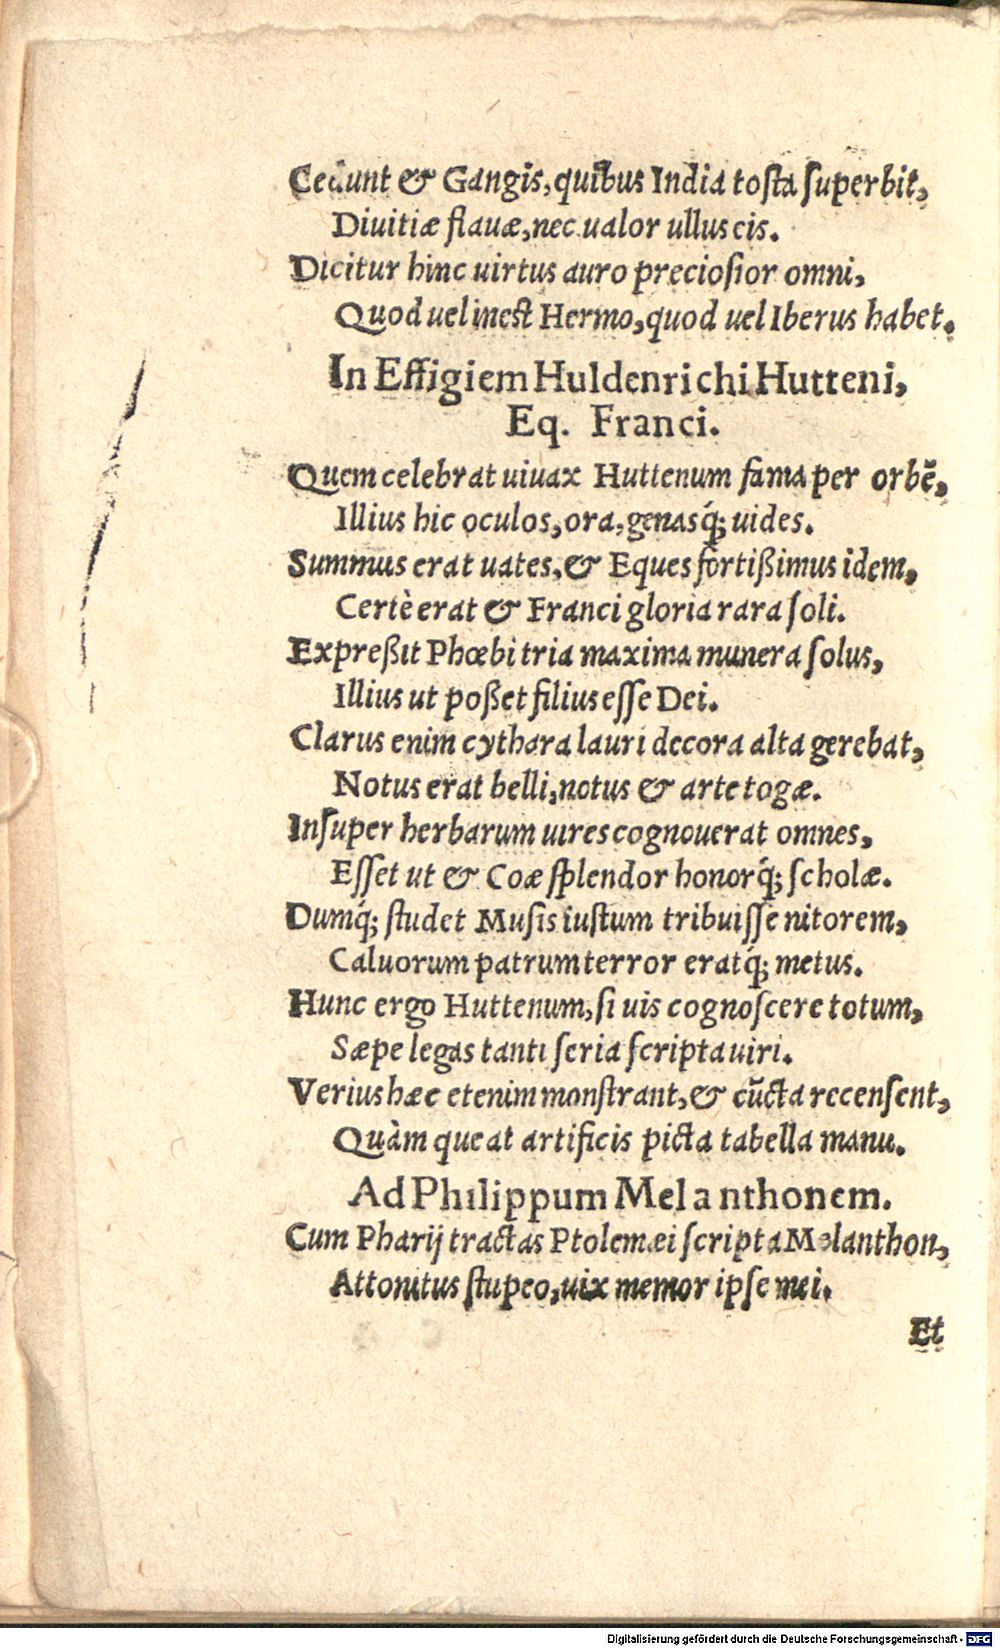 Cedunt & Gangis, quibus India tosta superbit,
Diuitiæ flauæ, nec ualor ullus eis.
Dicitur hinc uirtus auro preciosior omni,
Quod uel inest Hermo, quod uel Iberus habet.
In Effigiem Huldenrichi Hutteni,
Eq. Franci.
Quem celebrat uiuax Huttenum fama per orbē,
Illius hic oculos, ora, genasq́; uides.
Summus erat uates, & Eques fortißimus idem,
Certè erat & Franci gloria rara soli.
Expreßit Phœbi tria maxima munera solus,
Illius ut poßet filius esse Dei.
Clarus enim cythara lauri decora alta gerebat,
Notus erat belli, notus & arte togæ.
Insuper herbarum uires cognouerat omnes,
Esset ut & Coæ splendor honorq́; scholæ.
Dumq́; studet Musis iustum tribuisse nitorem,
Caluorum patrum terror eratq́; metus.
Hunc ergo Huttenum, si uis cognoscere totum,
Sæpe legas tanti seria scripta uiri.
Verius hæc etenim monstrant, & cūcta recensent,
Quàm queat artificis picta tabella manu.
Ad Philippum Melanthonem.
Cum Pharij tractas Ptolemæi scripta Melanthon,
Attonitus stupeo, uix memor ipse mei.
Et
Digitalisierung gefördert durch die Deutsche Forschungsgemeinschaft - DFG